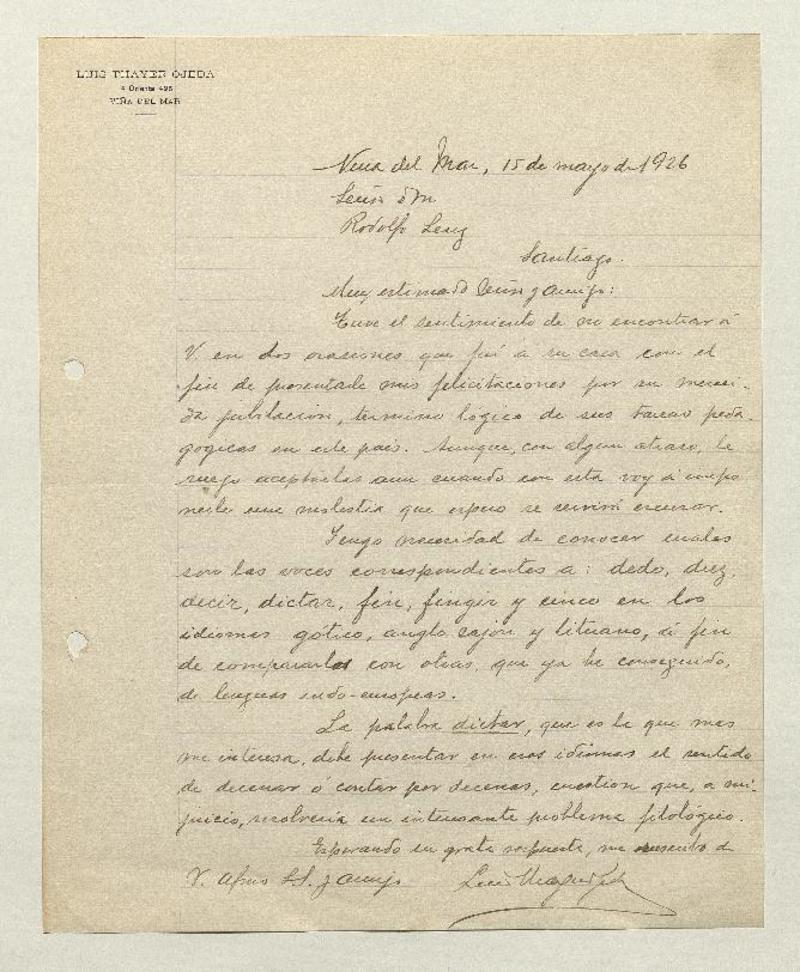 LUIS THAYER OJEDA
4 Oriente 495
VIÑA DEL MAR
Viña del Mar, 15 de mayo de 1926
Señor Dn
Rodolfo Lenz
Santiago.
Muy estimado Señor y amigo:
Tuve el sentimiento de no encontrar á
V. en dos ocasiones que fuí a su casa con el
fin de presentarle mis felicitaciones por su mereci-
da jubilación, termino lógico de sus tareas peda-
gogicas en este pais. Aunque, con algun atraso, le
ruego aceptarlas aun cuando con esta voy á impo
nerle una molestia que espero se servirá excusar.
Tengo necesidad de conocer cuales
son las voces correspondientes a: dedo, diez,
decir, dictar, fin, fingir y cinco en los
idiomas gótico, anglo sajón y lituano, á fin
de compararlas con otras, que ya he conseguido,
de lenguas indo-europeas.
La palabra dictar, que es la que mas
me interesa, debe presentar en esos idiomas el sentido
de decenar ó contar por decenas, cuestion que, a mi
juicio, resolvería un interesante problema filológico.
Esperando su grata respuesta, me suscribo de
V. Afmo SS. y amigo Luis Thayer Ojeda